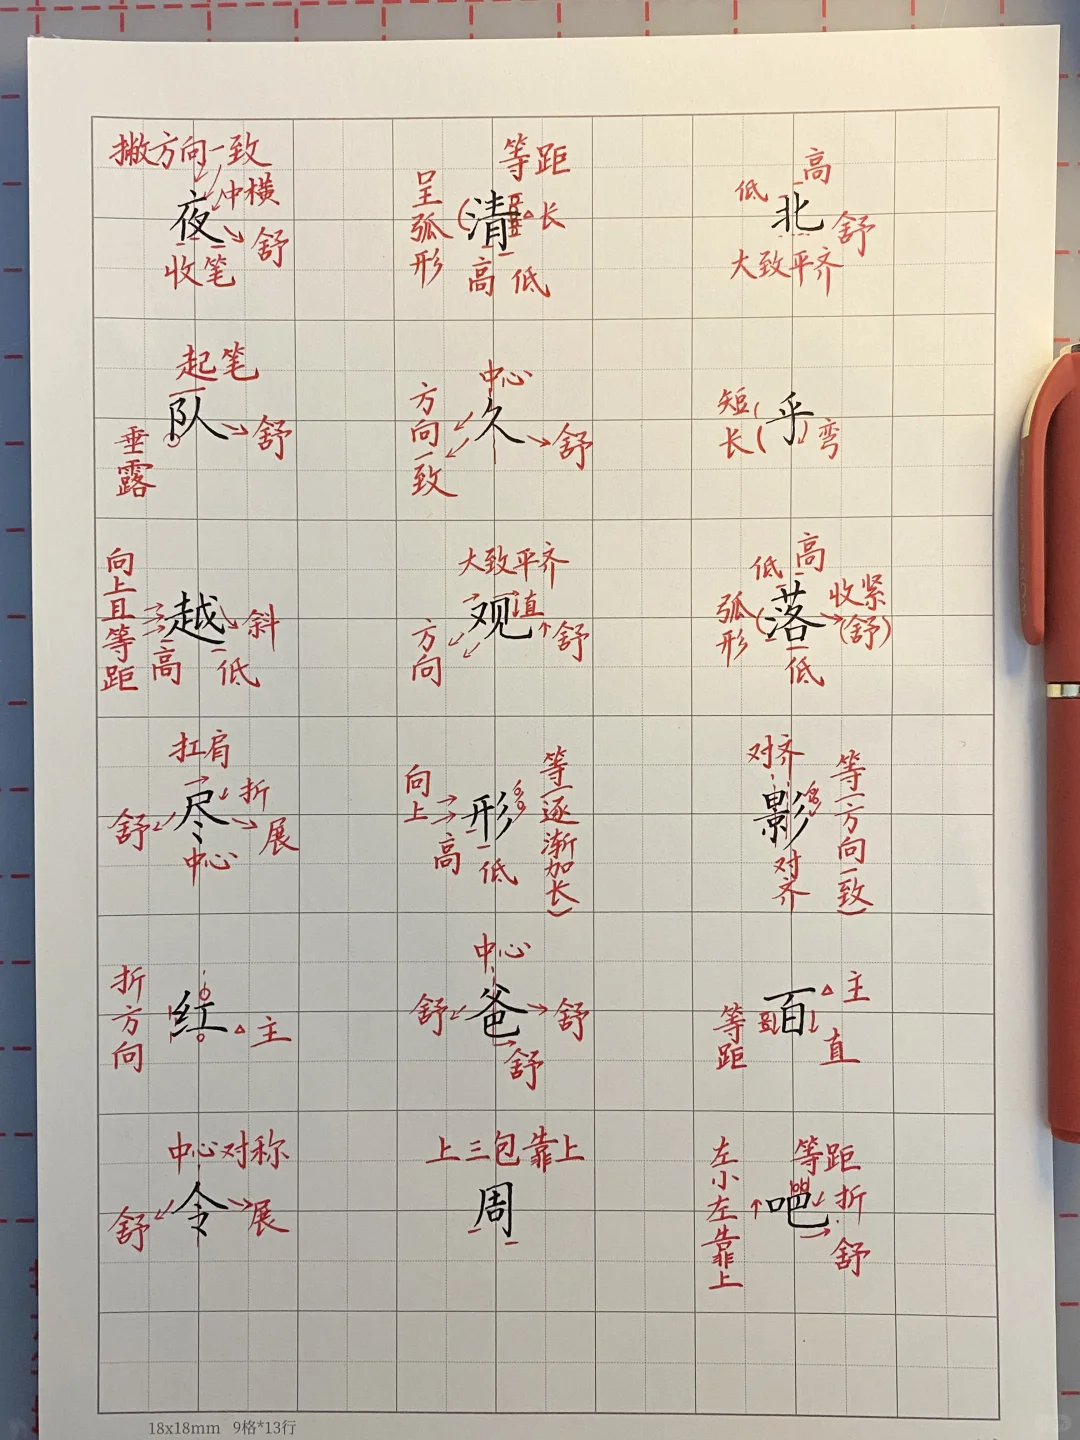 撇方向一致
冲横
夜
舒
收笔
等距
呈弧形
清
长
高 低
高
低
北
舒
大致平齐
起笔
队
舒
垂露
中心
方向一致
久
舒
短
长
乎
弯
向上且等距
越
斜
高 低
大致平齐
方向
观
直
舒
高
低
弧形
落
收紧
(舒)
低
扛肩
尽
折
舒
展
中心
向上
形
等(逐渐加长)
高 低
对齐
影
等(方向一致)
对齐
折方向
红
主
中心
舒
爸
舒
舒
百
主
等距
直
中心对称
令
舒
展
上三包靠上
周
左小左靠上
等距
吧
折
舒
18x18mm 9格*13行